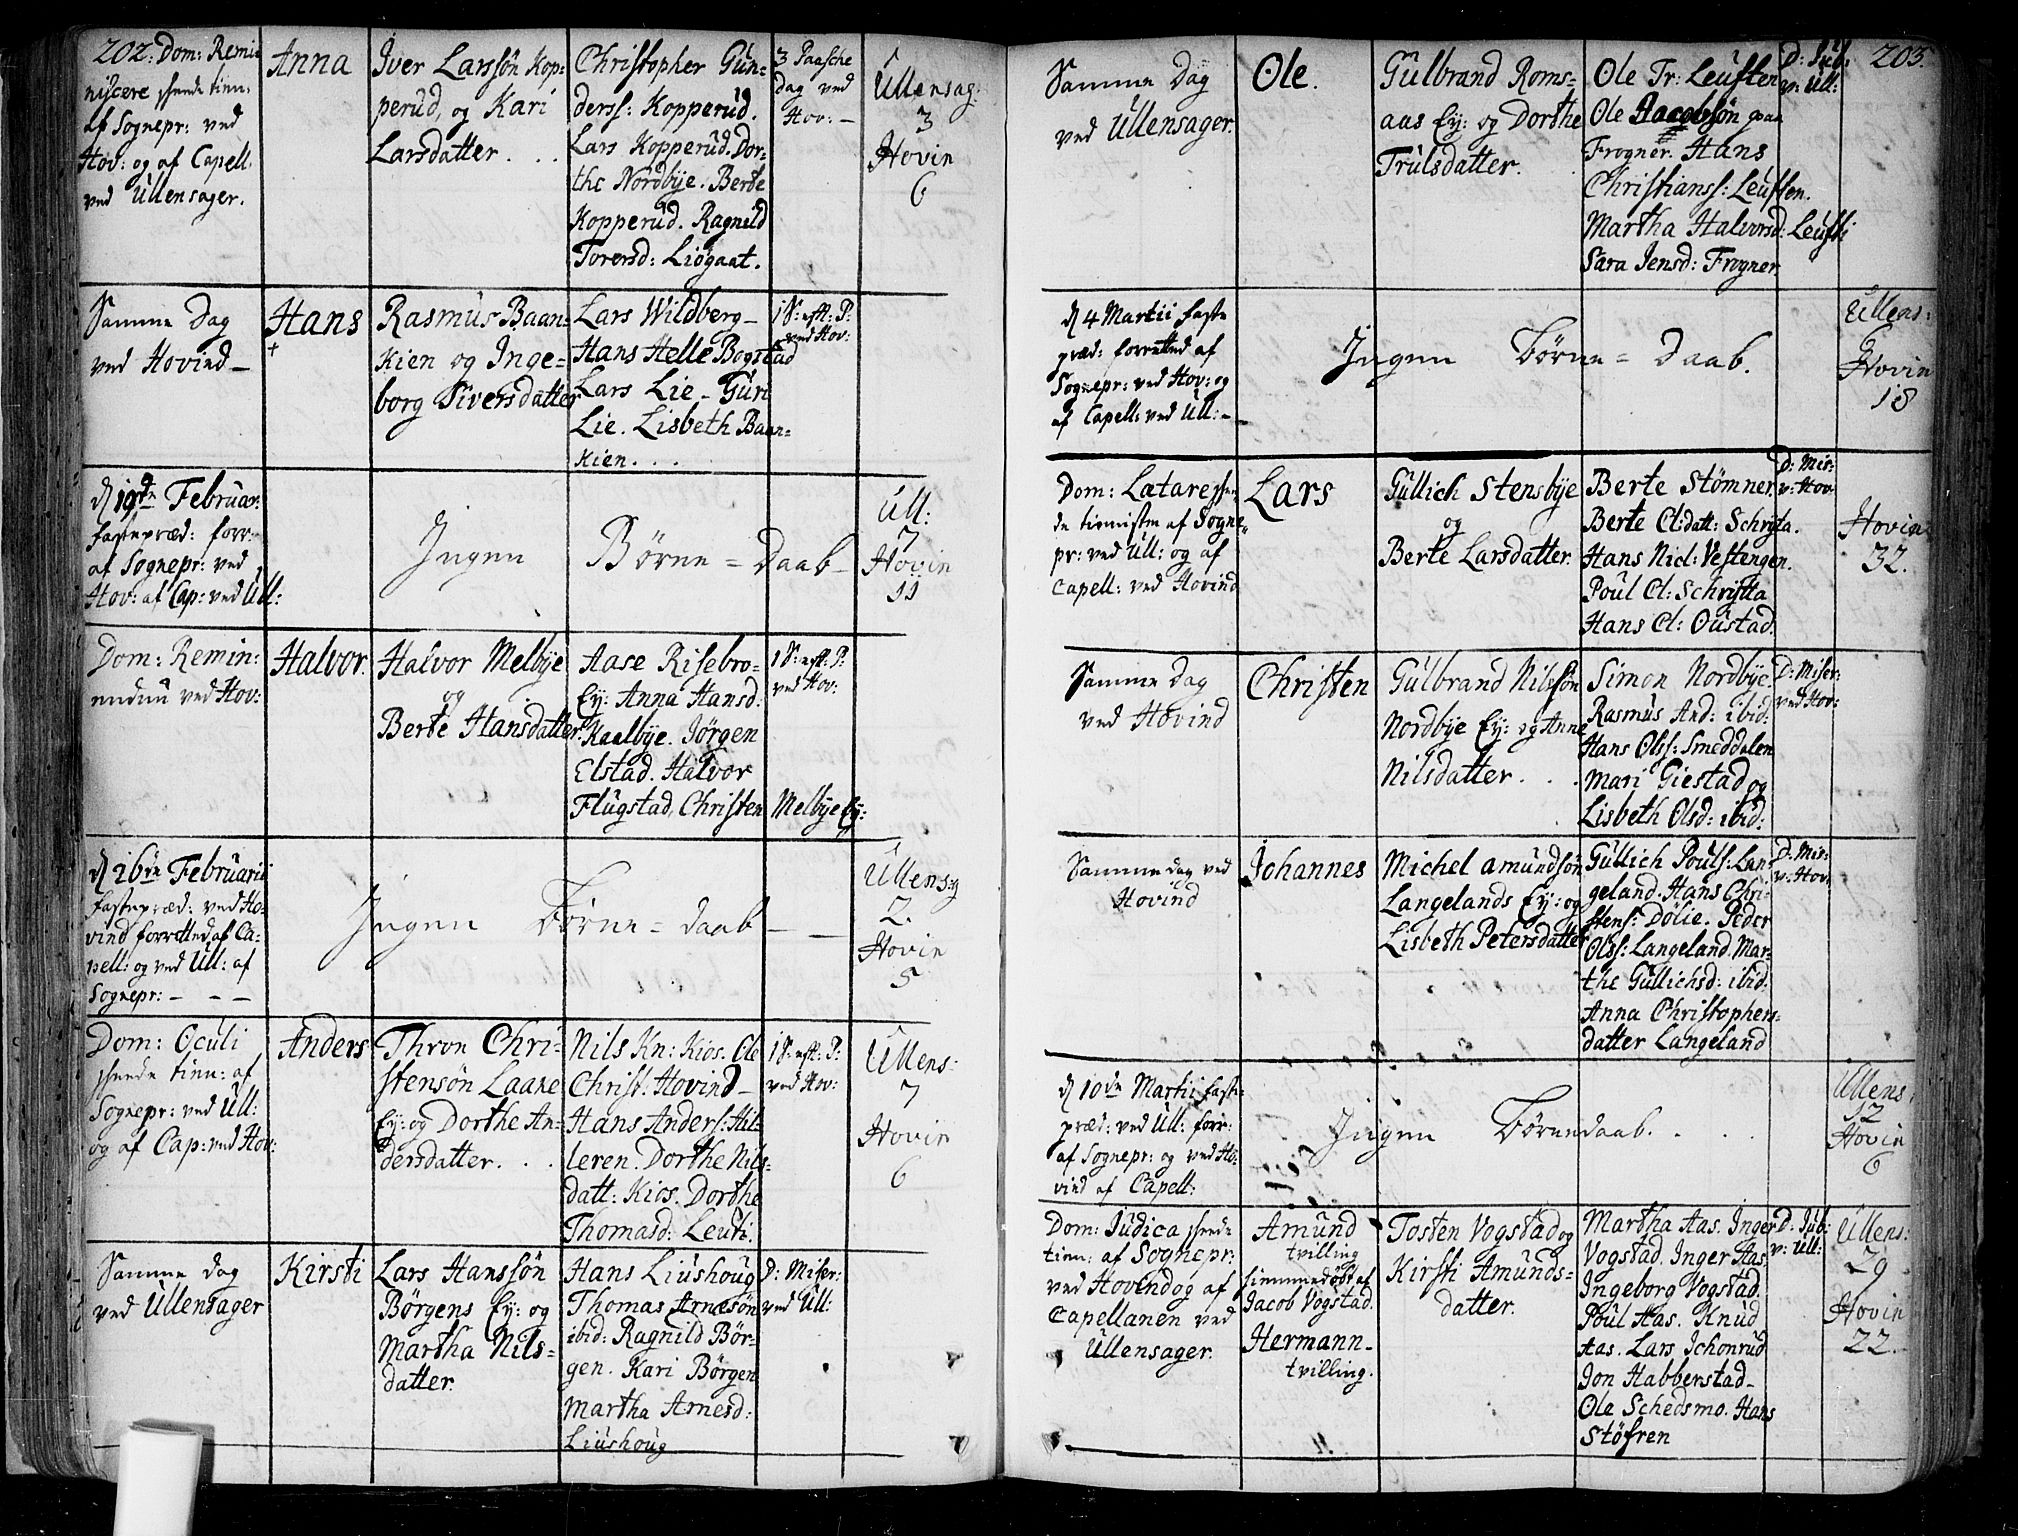 202. Dom: Remi-
niscere
af Sognepr: ved
Hov: og af Capell.
ved Ullensager.
Anna
Iver Larssøn Kop-
perud, og Kari
Larsdatter . . .
Christopher Gun-
derss: Kopperud.
Lars Kopperud. Dor-
the Nordbye. Berte
Kopperud. Ragnild
Torersd: Liøgaat.
3 Paasche
dag ved
Hov: -
Ullensag:
3
Hovin
6
Samme Dag
ved Hovind -
Hans
+
Rasmus Baan-
Kien og Inge-
borg Siversdatter
Lars Wildberg -
Hans Helle Bogstad
Lars Lie - Guri
Lie. Lisbeth Baan-
Kien . . .
1 S: eft: P:
ved Hov:
d 19de Februar:
fastepræd: forr:
af Sognepr: ved
Hov: af Cap: ved Ull:
Ingen Børne = daab -
Ull:
7
Hovin
11
Dom: Remin:
ved Hov:
Halvor.
Halvor Melbye
og
Berte Hansdatter.
Aase Risebro-
Ey: Anna Hansd:
Kaalbye. Jørgen
Elstad. Halvor
Flugstad, Christen Melbye Ey:
1 S: eft: P:
ved Hov:
d 26de Februarii
fastepræd: ved Ho-
vind forretted af Ca-
pell: og ved Ull: af
Sognepr: - - -
Ingen Børne = daab - -
Ullens:
2.
Hovin
5
Dom: Oculi
skrede tien: af
Sognepr: ved Ull:
og af Cap: ved Hov:
Anders
Thron Chri-
stensøn Laane
Ey: og Dorthe An-
dersdatter. . .
Nils Kn: Kios. Ole
Christ: Hovind -
Hans Anders: Hil-
leren. Dorthe Nils-
datt: Kios. Dorthe
Thomasd: Leuti.
1 S: eft: P:
ved Hov:
Ullens:
7
Hovin
6
Samme dag
ved Ullensager
Kirsti
Lars Hanssøn
Børgens Ey: og
Martha Nils-
datter.
Hans Liushoug
Thomas Arnesøn
ibid: Ragnild Bør-
gen. Kari Børgen
Martha Arnesd:
Liushoug
D: Miser:
ved Ull:
203.
Samme Dag
ved Ullensager.
Ole.
Gulbrand Roms-
aas Ey: og Dorthe
Trulsdatter.
Ole Tr: Leusten
Ole Jacobsøn paa
Frogner. Hans
Christianss: Leusten.
Martha Halvorsd: Leusti
Sara Jensd: Frogner
D: Jub:
v: Ull:
d 4 Martii faste
præd: forretted af
Sognepr: ved Hov: og
af Capell: ved Ull: -
Ingen Børne = Daab.
Ullens:
6
Hovin
18
Dom: Latare
de tienisten af Sogne-
pr: ved Ull: og af
Capell: ved Hovind
Lars
Gullich Stensbye
og
Berte Larsdatter.
Berte Stømner.
Berte Cl: datt: Schrista.
Hans Nicl: Vestengen.
Poul Cl: Schristta
Hans Cl: Oustad.
D: Mis:
v: Hov:
Hovin
32.
Samme Dag
ved Hovind
Christen
Gulbrand Nilssøn
Nordbye Ey: og Anne
Nilsdatter . . .
Simon Nordbye
Rasmus And: ibid:
Hans Olss: Smeddalen
Mari Giestad og
Lisbeth Olsd: ibid:
D: Miser:
ved Hov:
Samme dag ved
Hovind
Johannes
Michel Amundsøn
Langelands Ey: og
Lisbeth Petersdatter
Gullich Pouls: Lan-
geland. Hans Chri-
stens: Dølie. Peder
Olss: Langeland. Mar-
the Gullichsd: ibid:
Anna Christophers-
datter Langeland
D: Mis:
v: Hov:
d 10de Martii faste-
præd: ved Ull: forr:
af Sognepr: og ved Ho-
vind af Capell:
Ingen Børnedaab. . .
Ullens:
12
Hovin
6
Dom: Judica skrede
tien: af Sognepr:
ved Hovend og af
Capellanen ved
Ullensager.
Amund
tvilling
hiemmedøbt af
Jacob Vogstad.
Hermann -
tvilling.
Tosten Vogstad og
Kirsti Amunds-
datter.
Martha Aas. Inger
Vogstad. Inger Aas.
Ingeborg Vogstad.
Poul Aas. Knud
Aas. Lars Schonrud
Jon Habberstad -
Ole Schedsmo. Hans
Støfren
D: Jub:
v: Ull:
Ullens:
29
Hovin
22.